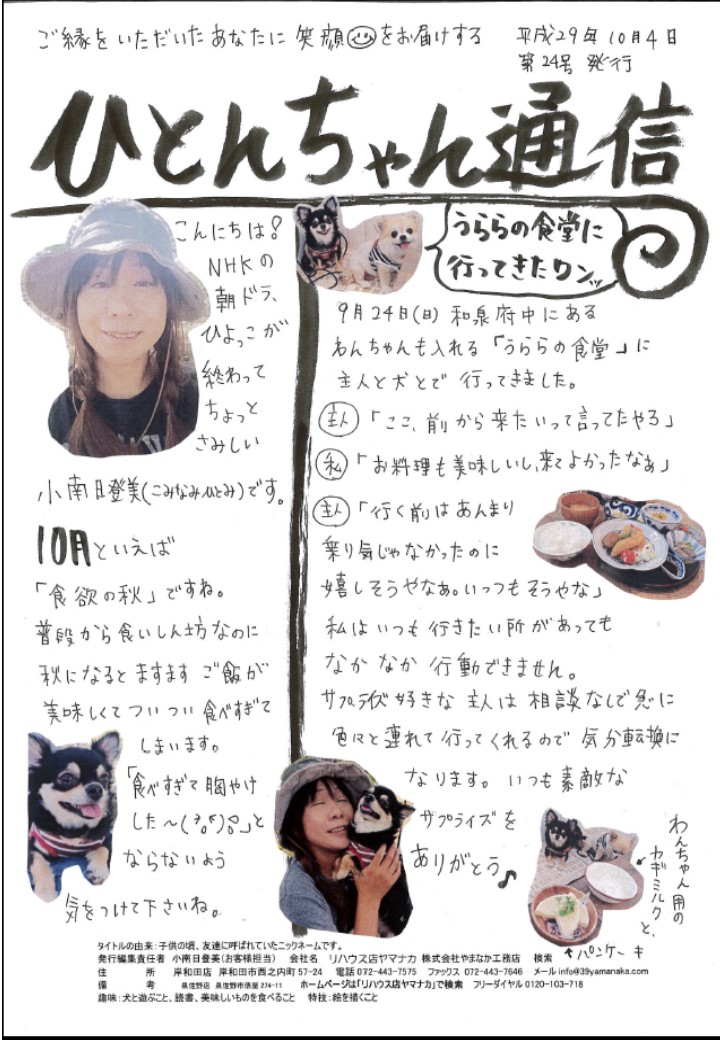 ご縁をいただいたあなたに笑顔をお届けする
平成29年10月4日
第24号 発行
ひとんちゃん通信
こんにちは!
NHKの
朝ドラ、
ひよっこが
終わって
ちょっと
さみしい
小南日登美(こみなみひとみ)です。
10月といえば
「食欲の秋」ですね。
普段から食いしん坊なのに
秋になるとますますご飯が
美味しくてついつい食べすぎて
しまいます。
「食べすぎて胸やけ
した〜
」と
ならないよう
気をつけて下さいね。
うららの食堂に
行ってきたワンッ
9月24日(日) 和泉府中にある
わんちゃんも入れる「うららの食堂」に
主人と犬とで行ってきました。
主人「ここ、前から来たいって言ってたやろ」
私「お料理も美味しいし、来てよかったなぁ」
主人「行く前はあんまり
乗り気じゃなかったのに
嬉しそうやなぁ。いっつもそうやな」
私はいつも行きたい所があっても
なかなか行動できません。
サプライズ好きな主人は相談なしで急に
色々と連れて行ってくれるので気分転換に
なります。いつも素敵な
サプライズを
ありがとう♪
わんちゃん用の
ヤギミルクと、
パンケーキ
タイトルの由来:子供の頃、友達に呼ばれていたニックネームです。
発行編集責任者 小南日登美(お客様担当) 会社名 リハウス店ヤマナカ 株式会社やまなか工務店 検索
住 所 岸和田店 岸和田市西之内町57-24 電話 072-443-7575 ファックス 072-443-7646 メール info@39yamanaka.com
備 考 泉佐野店 泉佐野市俵屋274-11 ホームページは「リハウス店ヤマナカ」で検索 フリーダイヤル 0120-103-718
趣味:犬と遊ぶこと、読書、美味しいものを食べること 特技:絵を描くこと